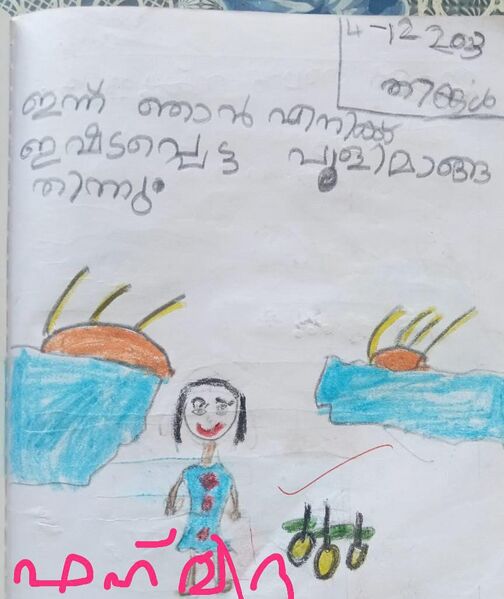 4-12 2023
തിങ്കൾ
ഇന്ന് ഞാൻ എനിക്ക്
ഇഷടപ്പെട്ട പുളിമാങ്ങ
തിന്നു.
ഫഹ് മിദ